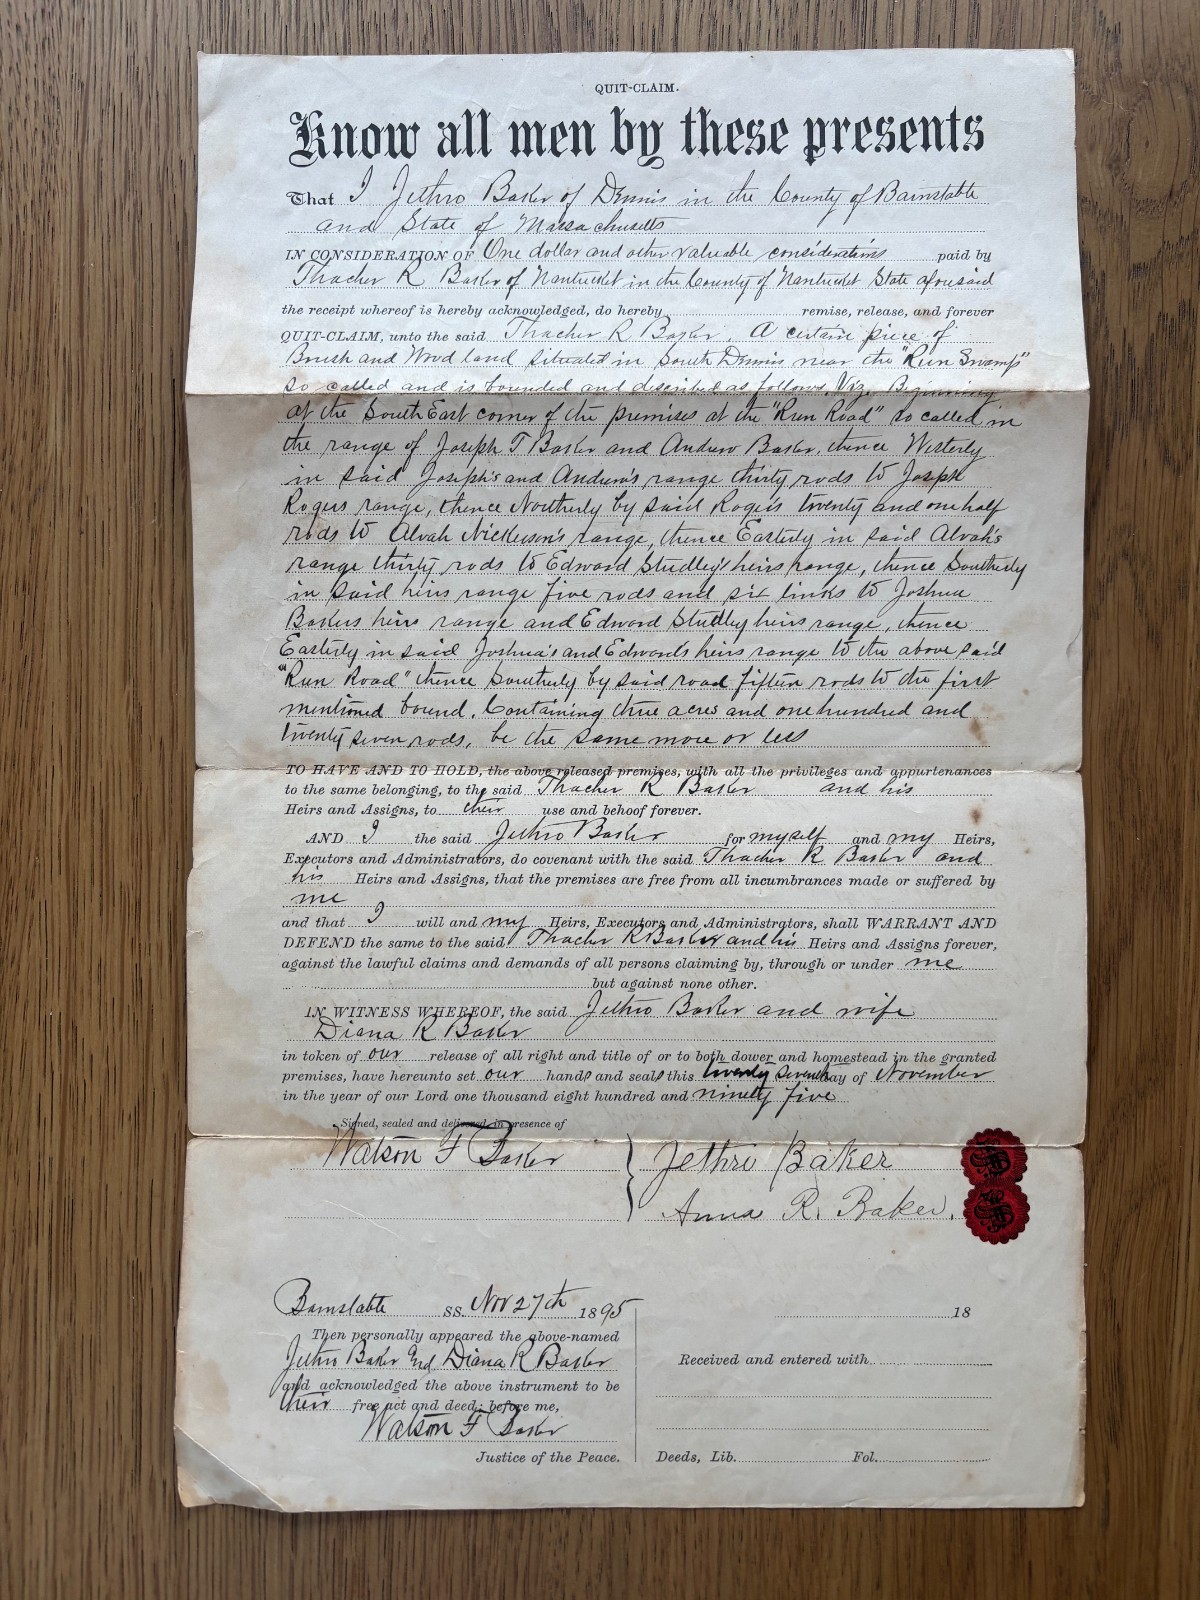 QUIT-CLAIM.
Know all men by these presents
That I Jethro Baker of Dennis in the County of Barnstable
and State of Massachusetts
IN CONSIDERATION OF One dollar and other valuable considerations paid by
Thacher R Baker of Nantucket in the County of Nantucket State aforesaid
the receipt whereof is hereby acknowledged, do hereby remise, release, and forever
QUIT-CLAIM, unto the said Thacher R Baker, A certain piece of
Brush and Wood land situated in South Dennis near the "Run Swamp"
so called and is bounded and described as follows, Viz. Beginning
at the South East corner of the premises at the "Run Road" so called in
the range of Joseph T Baker and Andrew Baker, thence Westerly
in said Joseph's and Andrew's range thirty rods to Joseph
Rogers range, thence Northerly by said Rogers twenty and one half
rods to Alvah Nickerson's range, thence Easterly in said Alvah's
range thirty rods to Edward Studley's heirs range, thence Southerly
in said heirs range five rods and six links to Joshua
Bakers heirs range and Edward Studley heirs range, thence
Easterly in said Joshua's and Edwards heirs range to the above said
"Run Road" thence Southerly by said road fifteen rods to the first
mentioned bound. Containing three acres and one hundred and
twenty seven rods, be the same more or less
TO HAVE AND TO HOLD, the above released premises, with all the privileges and appurtenances
to the same belonging, to the said Thacher R Baker and his
Heirs and Assigns, to their use and behoof forever.
AND I the said Jethro Baker for myself and my Heirs,
Executors and Administrators, do covenant with the said Thacher R Baker and
his Heirs and Assigns, that the premises are free from all incumbrances made or suffered by
me
and that I will and my Heirs, Executors and Administrators, shall WARRANT AND
DEFEND the same to the said Thacher R Baker and his Heirs and Assigns forever,
against the lawful claims and demands of all persons claiming by, through or under me
but against none other.
IN WITNESS WHEREOF, the said Jethro Baker and wife
Diana R Baker
in token of our release of all right and title of or to both dower and homestead in the granted
premises, have hereunto set our hands and seals this twenty seventh day of November
in the year of our Lord one thousand eight hundred and ninety five
Signed, sealed and delivered in presence of
Watson F Baker
Jethro Baker
Anna R. Baker.
Barnstable SS. Nov 27th 1895
Then personally appeared the above-named
Jethro Baker And Diana R Baker
and acknowledged the above instrument to be
their free act and deed; before me,
Watson F Baker
Justice of the Peace.
18
Received and entered with
Deeds, Lib. Fol.